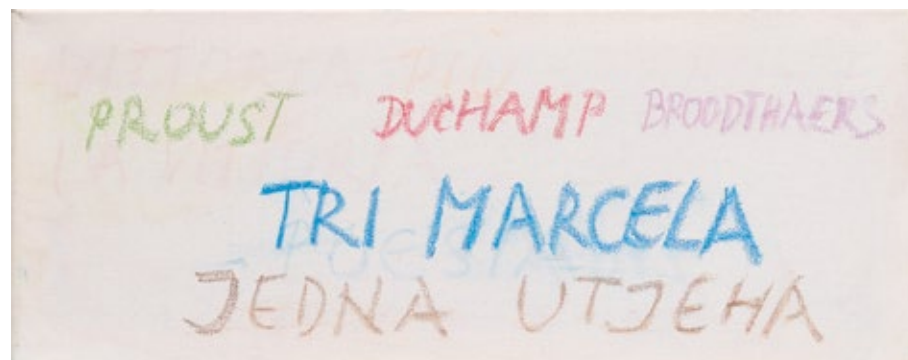 PROUST DUCHAMP BROODTHAERS
TRI MARCELA
JEDNA UTJEHA